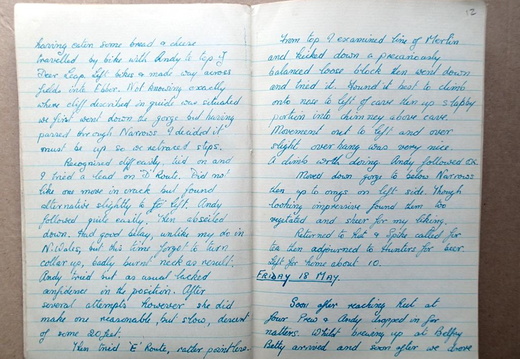 having eaten some bread & cheese
travelled by bike with Andy to top of
Deer Leap. Left bikes & made way across
fields into Ebbor. Not knowing exactly
where cliff described in guide was situated
we first went down the gorge but having
passed through Narrows I decided it
must be up so we retraced steps.
Recognised cliff easily, tied on and
I tried a lead on 'D' Route. Did not
like one move in crack but found
alternative slightly to left. Andy
followed quite easily. Then abseiled
down. Had good belay, unlike my do in
N. Wales, but this time forgot to turn
collar up, badly burnt neck as result.
Andy tried but as usual lacked
confidence in the position. After
several attempts however she did
make one reasonable, but slow, descent
of some 20 feet.
Then tried 'E' Route, rather pointless.
12
From top I examined line of Merlin
and kicked down a precariously
balanced loose block then went down
and tried it. Found it best to climb
onto nose to left of cave then up steppy
portion into chimney above cave.
Movement out to left and over
slight overhang was very nice.
A climb worth doing. Andy followed OK.
Moved down gorge to below Narrows
then up to crags on left side. Though
looking impressive found them too
vegetated and sheer for my liking.
Returned to Hut & Spike called for
tea then adjourned to Hunters for beer.
Left for home about 10.
FRIDAY 18 MAY.
Soon after reaching Hut at
four Prew & Andy dropped in for
natters. Whilst brewing up at Belfry
Betty arrived and soon after we were